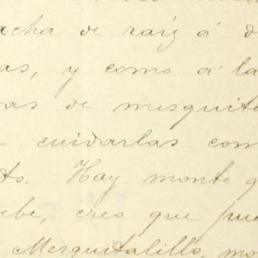 acha de raíz á d
as, y como a la
as de mesquite
cuidarlas com
to. Hay monte q
be, creo que pue
Mesquitalillo, mo